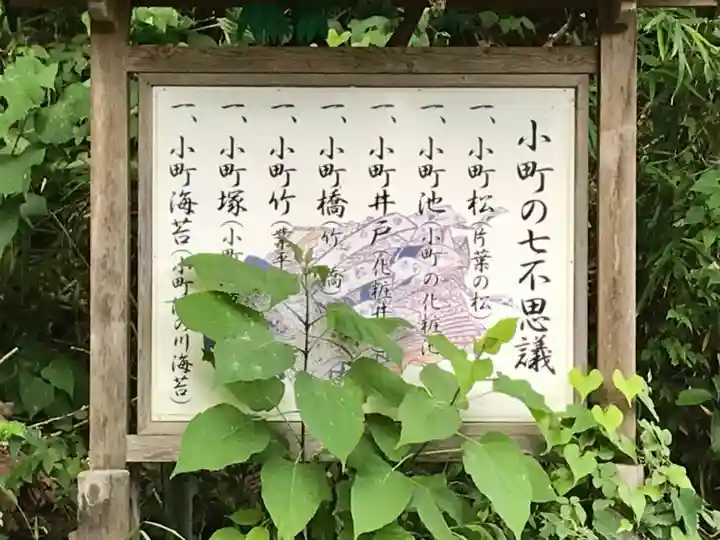 小町の七不思議
一、小町松(片葉の松)
一、小町池(小町の化粧池
一、小町井戸(化粧井
一、小町橋(竹
一、小町竹(業平
一、小町塚(小町
一、小町海苔(小町 の川海苔)